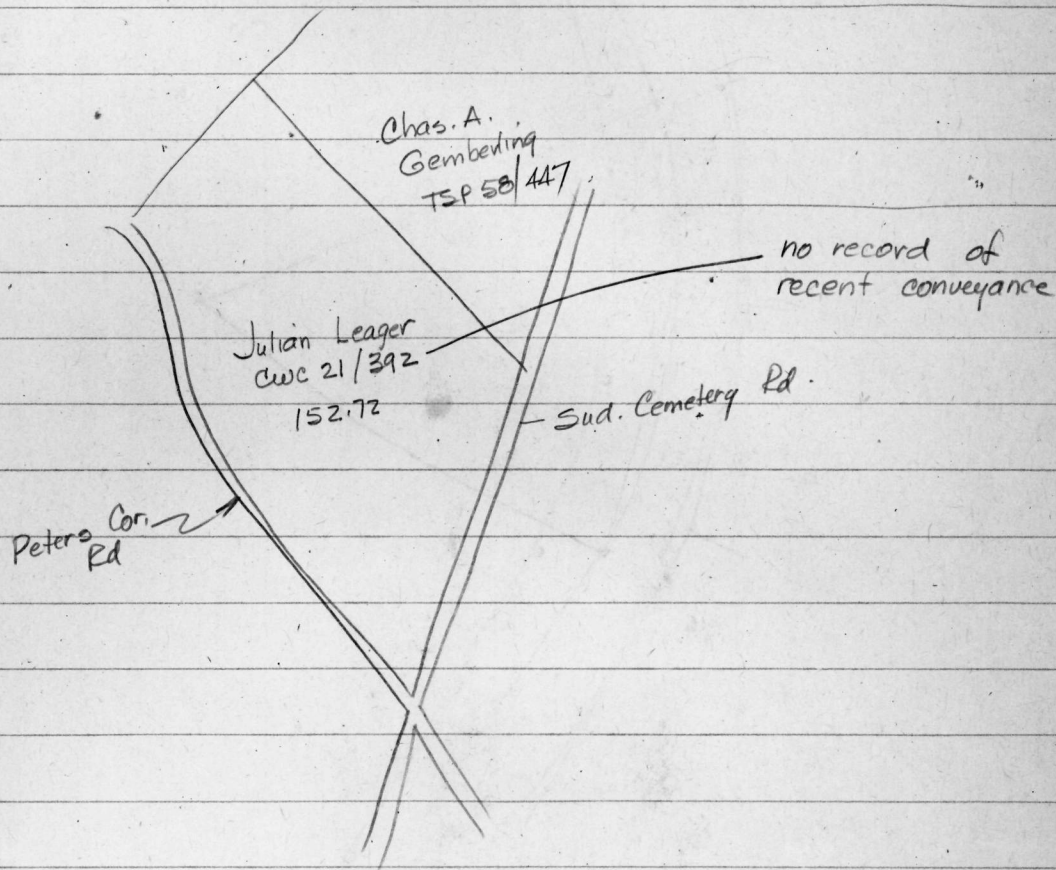 Chas. A.
Gemberling
TSP 58/447
no record of
recent conveyance
Julian Leager
CWC 21/392
152.72
Sud. Cemetery Rd.
Peters Cor.
Rd